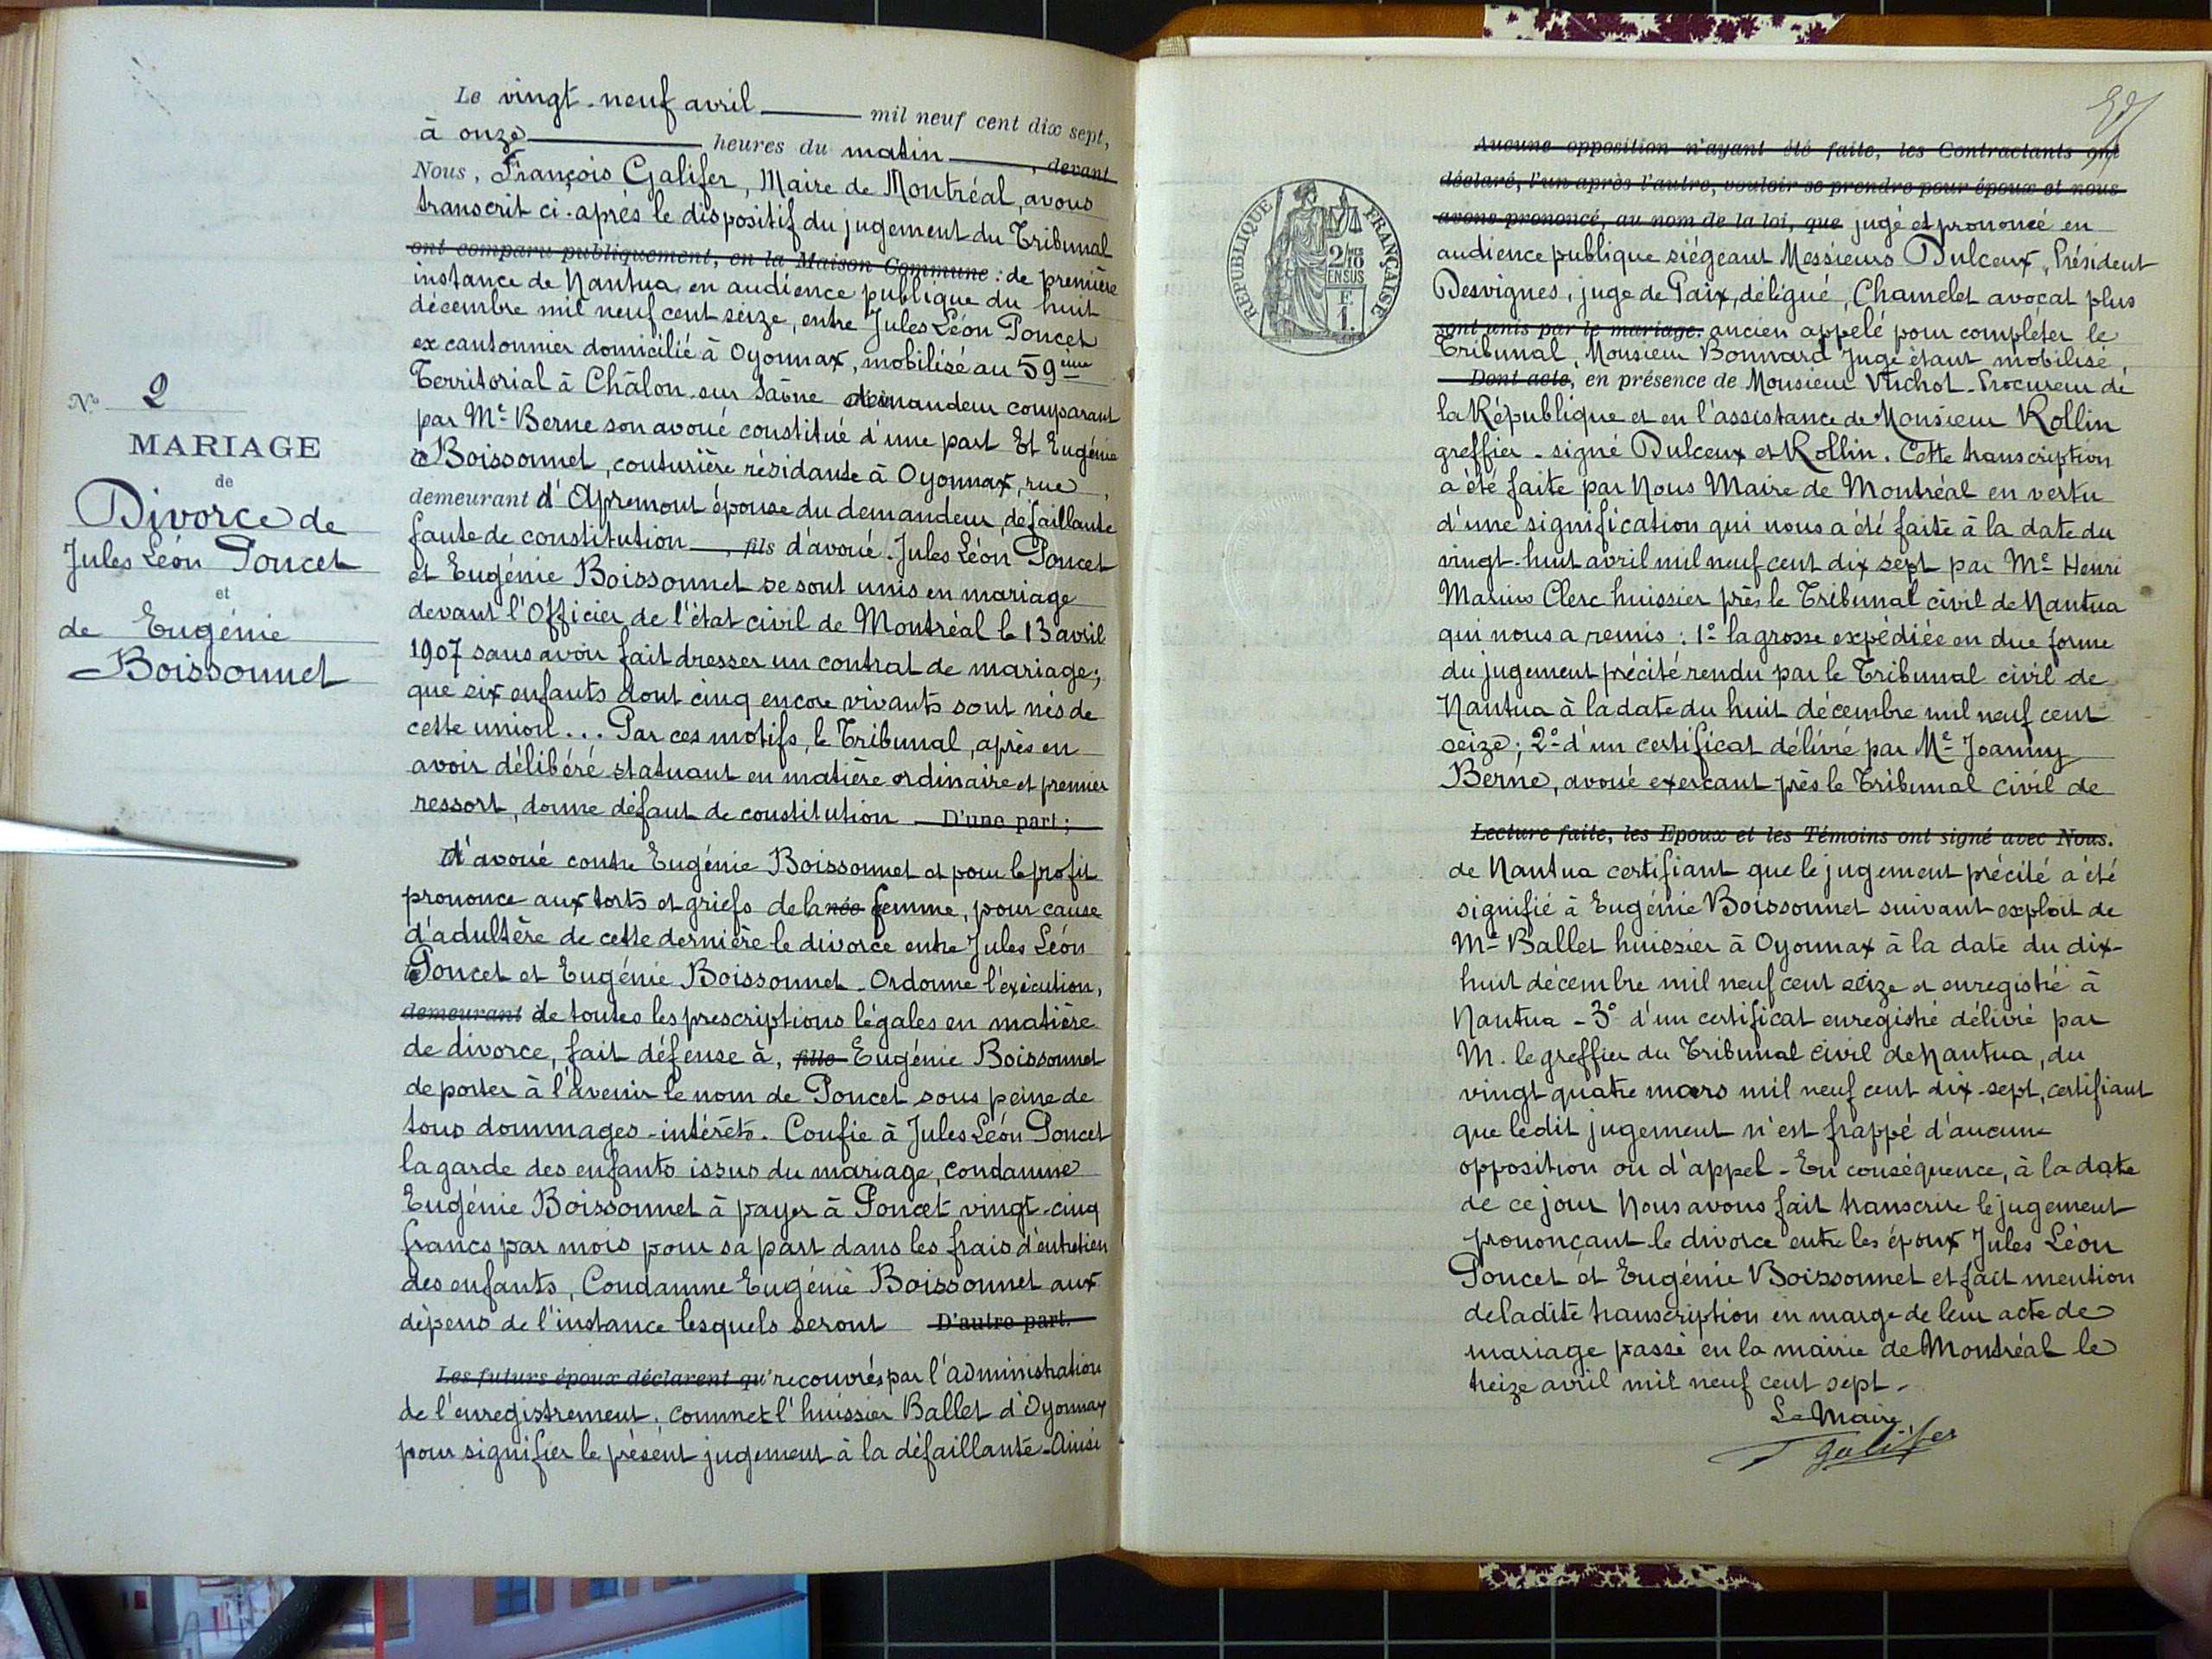 Le vingt-neuf avril mil neuf cent dix sept,
à onze heures du matin, devant
Nous, François Galifer, Maire de Montréal, avons
transcrit ci-après le dispositif du jugement du Tribunal
ont comparu publiquement, en la Maison Commune : de première
instance de Nantua en audience publique du huit
décembre mil neuf cent seize, entre Jules Léon Poncet
ex cantonnier domicilié à Oyonnax, mobilisé au 59ème
Territorial à Châlon sur Saône demandeur comparant
par Me Berne son avoué constitué d'une part Et Eugénie
Boissonnet, couturière résidante à Oyonnax, rue,
demeurant d'Apremont épouse du demandeur, défaillante
faute de constitution, fils d'avoué. Jules Léon Poncet
et Eugénie Boissonnet se sont unis en mariage
devant l'Officier de l'état civil de Montréal le 13 avril
1907 sans avoir fait dresser un contrat de mariage;
que six enfants dont cinq encore vivants sont nés de
cette union... Par ces motifs, le Tribunal, après en
avoir délibéré statuant en matière ordinaire et premier
ressort, donne défaut de constitution D'une part;
d'avoué contre Eugénie Boissonnet et pour le profit
prononce aux torts et griefs de la née femme, pour cause
d'adultère de cette dernière le divorce entre Jules Léon
Poncet et Eugénie Boissonnet. Ordonne l'exécution,
demeurant de toutes les prescriptions légales en matière
de divorce, fait défense à, fille Eugénie Boissonnet
de porter à l'avenir le nom de Poncet sous peine de
tous dommages-intérêts. Confie à Jules Léon Poncet
la garde des enfants issus du mariage, condamne
Eugénie Boissonnet à payer à Poncet vingt-cinq
francs par mois pour sa part dans les frais d'entretien
des enfants, Condamne Eugénie Boissonnet aux
dépens de l'instance lesquels seront D'autre part.
Les futurs époux déclarent qu'recouvrés par l'administration
de l'enregistrement, commet l'huissier Ballet d'Oyonnax
pour signifier le présent jugement à la défaillante. Ainsi
N° 2
MARIAGE
de
Divorce de
Jules Léon Poncet
et
de Eugénie
Boissonnet
Aucune opposition n'ayant été faite, les Contractants ont
déclaré, l'un après l'autre, vouloir se prendre pour époux et nous
avons prononcé, au nom de la loi, que jugé et prononcé en
audience publique siégeant Messieurs Dulceux, Président
Desvignes, juge de Paix, délégué, Chamelet avocat plus
sont unis par le mariage. ancien appelé pour compléter le
Tribunal, Monsieur Bonnard Juge étant mobilisé,
Dont acte, en présence de Monsieur Vuchot Procureur de
la République et en l'assistance de Monsieur Rollin
greffier. signé Dulceux et Rollin. Cette transcription
a été faite par Nous Maire de Montréal en vertu
d'une signification qui nous a été faite à la date du
vingt-huit avril mil neuf cent dix sept par Me Henri
Marius Clerc huissier près le Tribunal civil de Nantua
qui nous a remis : 1° la grosse expédiée en due forme
du jugement précité rendu par le Tribunal civil de
Nantua à la date du huit décembre mil neuf cent
seize; 2° d'un certificat délivré par Me Joanny
Berne, avoué exerçant près le Tribunal civil de
Lecture faite, les Epoux et les Témoins ont signé avec Nous.
de Nantua certifiant que le jugement précité a été
signifié à Eugénie Boissonnet suivant exploit de
Me Ballet huissier à Oyonnax à la date du dix-
huit décembre mil neuf cent seize et enregistré à
Nantua - 3° d'un certificat enregistré délivré par
M. le greffier du Tribunal Civil de Nantua, du
vingt quatre mars mil neuf cent dix-sept, certifiant
que ledit jugement n'est frappé d'aucune
opposition ou d'appel - En conséquence, à la date
de ce jour Nous avons fait transcrire le jugement
prononçant le divorce entre les époux Jules Léon
Poncet et Eugénie Boissonnet et fait mention
de ladite transcription en marge de leur acte de
mariage passé en la mairie de Montréal le
treize avril mil neuf cent sept.
Le Maire,
Galifer
RÉPUBLIQUE FRANÇAISE
2/10
EN SUS
F
1.